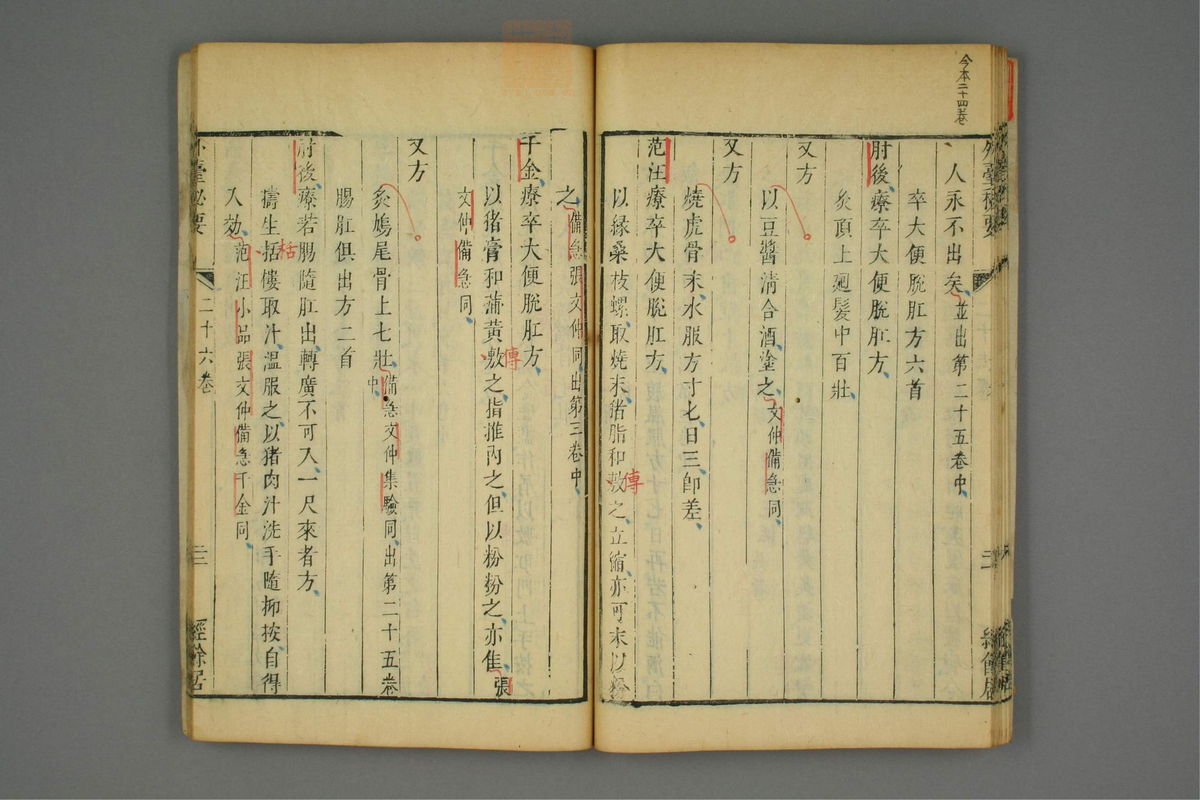 今本二十四卷
人永不出矣並出第二十五卷中
卒大便脫肛方六首
肘後療卒大便脫肛方
灸頂上廻髮中百壯
又方
以豆醬淸合酒塗之文仲備急同
又方
燒虎骨末水服方寸匕日三卽差
范汪療卒大便脫肛方
以緣桑枝螺取燒末猪脂和敷之立縮亦可末以粉
傅
之備急張文仲同出第三卷中
千金療卒大便脫肛方
以猪膏和蒲黃敷之指推內之但以粉粉之亦佳張
傅
文仲備急同
又方
灸鳩尾骨上七壯備急文仲集驗同出第二十五卷
中
腸肛俱出方二首
肘後療若腸隨肛出轉廣不可入一尺來者方
擣生括樓取汁溫服之以猪肉汁洗手隨抑按自得
栝
入効范汪小品張文仲備急千金同
外臺秘要
二十六卷
三
經餘居